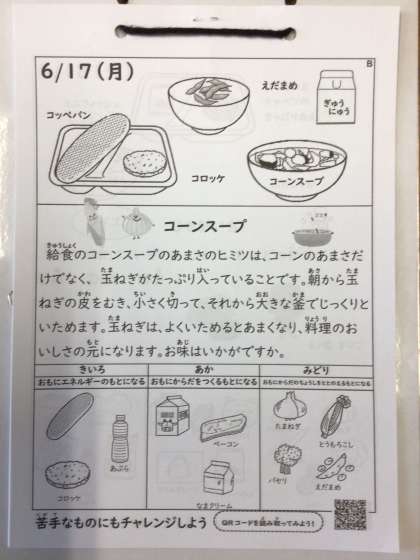 B
6/17(月)
えだまめ
ぎゅうにゅう
コッペパン
コロッケ
コーンスープ
コーンスープ
給食のコーンスープのあまさのヒミツは、コーンのあまさだ
けでなく、玉ねぎがたっぷり入っていることです。朝から玉
ねぎの皮をむき、小さく切って、それから大きな釜でじっくりと
いためます。玉ねぎは、よくいためるとあまくなり、料理のお
いしさの元になります。お味はいかがですか。
きいろ あか みどり
おもにエネルギーのもとになる おもにからだをつくるもとになる おもにからだのちょうしをととのえるもとになる
たまねぎ とうもろこし
あぶら ベーコン
コロッケ パセリ えだまめ
なまクリーム
苦手なものにもチャレンジしよう QRコードを読み取ってみよう!